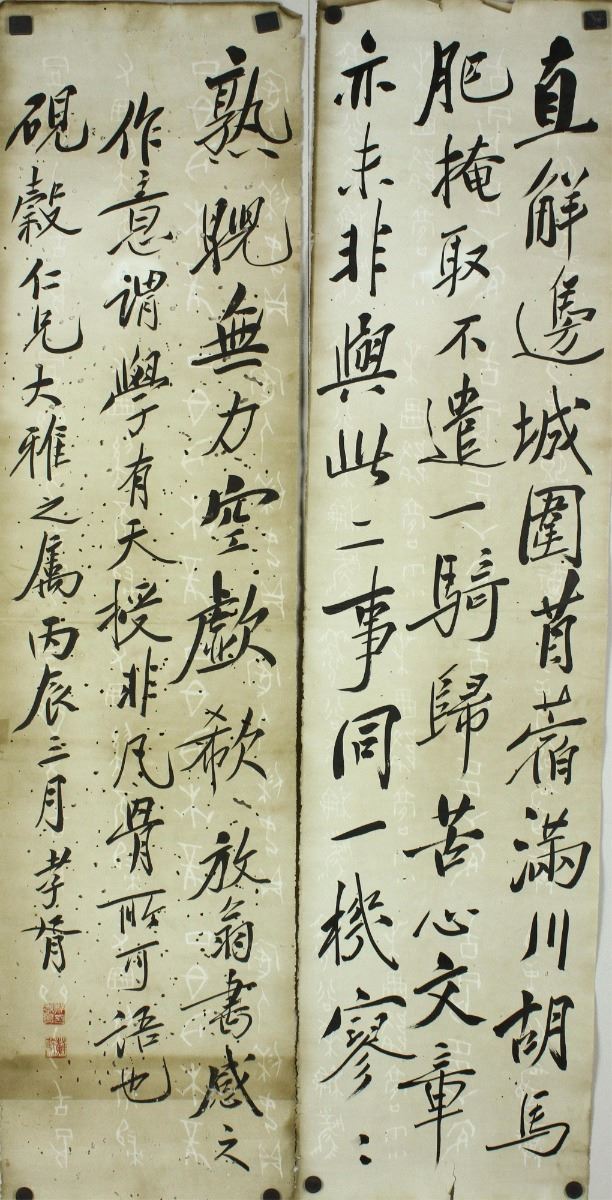 直解邊城圍苜蓿滿川胡馬
肥掩取不遣一騎歸苦心文章
亦未非與此二事同一機寥〻
熟睨無力空歔欷放翁書感之
作意謂學有天授非凡骨所可語也
硯穀仁兄大雅之屬丙辰三月孝胥